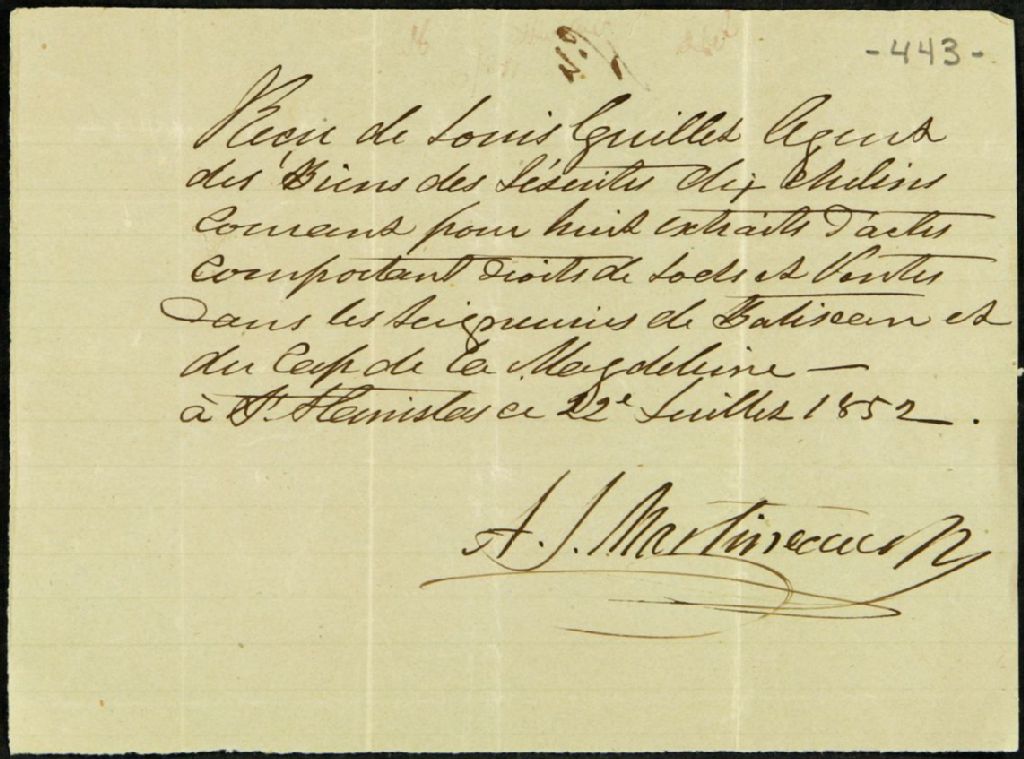 -443-
Reçu de Louis Guillet Agent
des Biens des Jésuites dix chelins
courant pour huit extraits d'actes
comportant droits de Lods et Ventes
dans les seigneuries de Batiscan et
du Cap de la Magdeleine —
à St. Stanislas ce 22e Juillet 1852.
A. J. Martineau